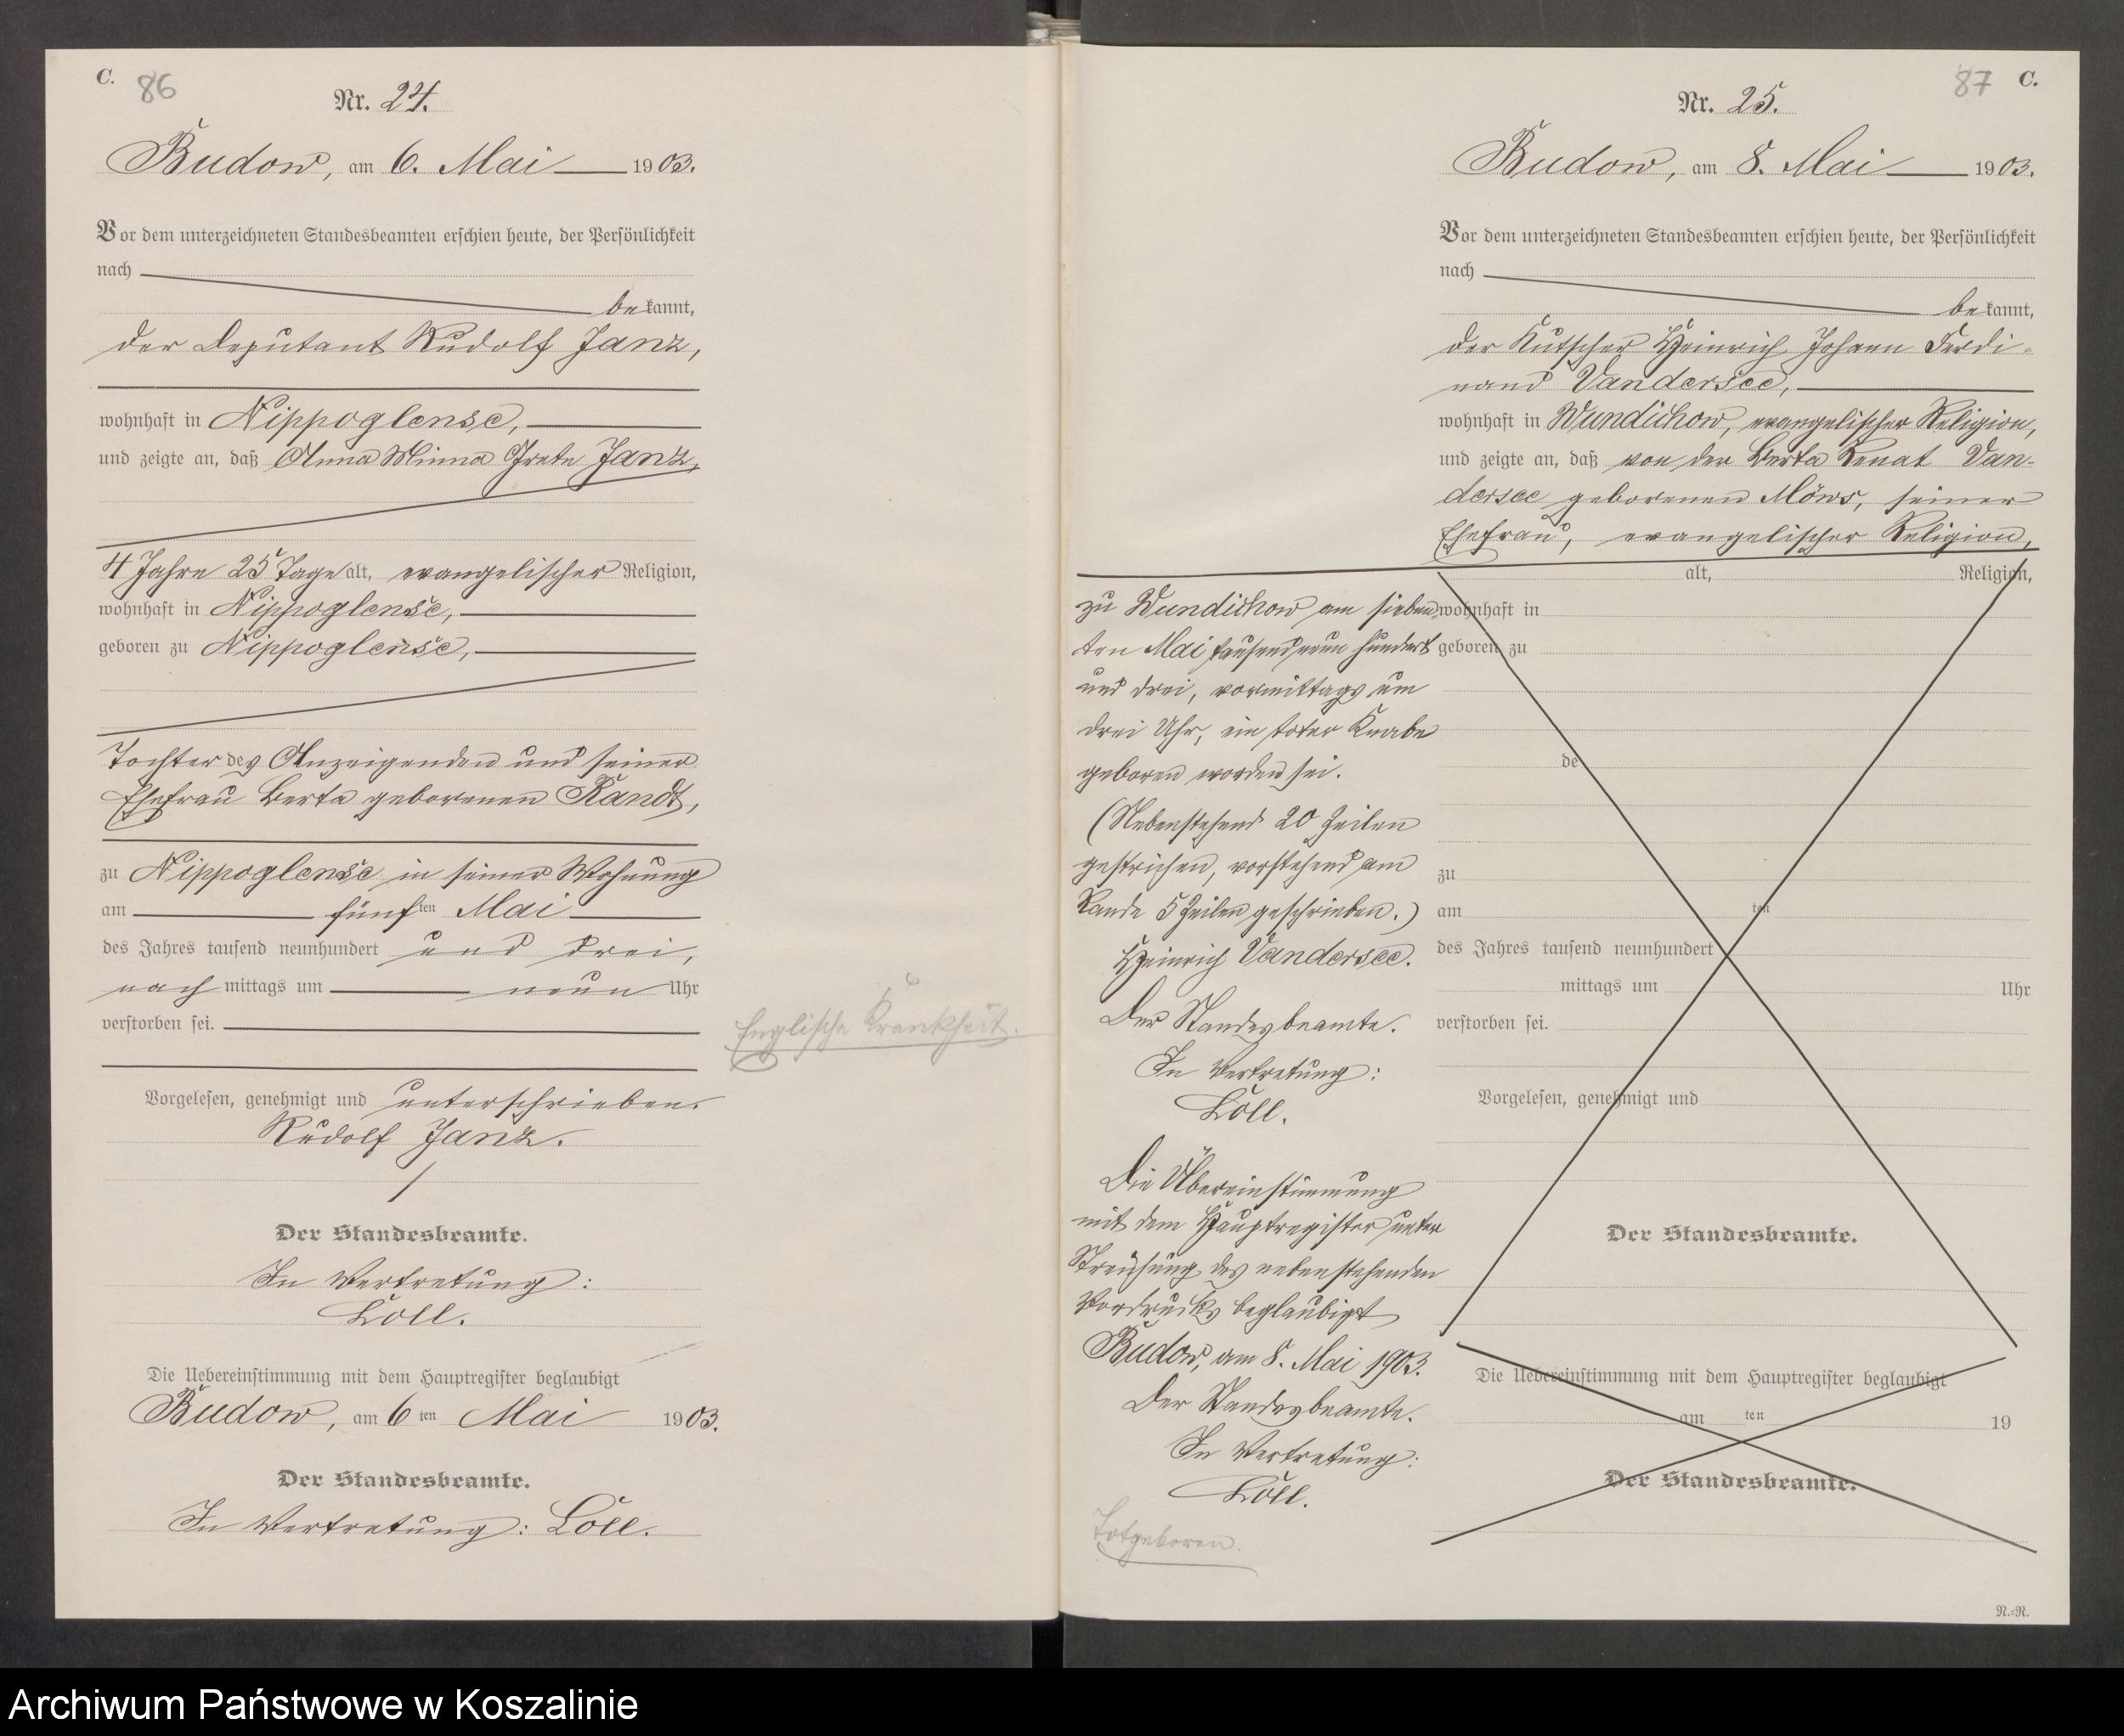 C. 86
Nr. 24.
Budow, am 6. Mai 1903.
Vor dem unterzeichneten Standesbeamten erschien heute, der Persönlichkeit
nach
bekannt,
der Deputant Rudolf Janz,
wohnhaft in Nippoglense,
und zeigte an, daß Anna Minna Grete Janz,
4 Jahre 25 Tage alt, evangelischer Religion,
wohnhaft in Nippoglense,
geboren zu Nippoglense,
Tochter des Anzeigenden und seiner
Ehefrau Berta geborenen Randt,
zu Nippoglense in seiner Wohnung
am fünften Mai
des Jahres tausend neunhundert und drei,
nach mittags um neun Uhr
verstorben sei.
Englische Krankheit.
Vorgelesen, genehmigt und unterschrieben.
Rudolf Janz.
Der Standesbeamte.
In Vertretung:
Löll.
Die Uebereinstimmung mit dem Hauptregister beglaubigt
Budow, am 6ten Mai 1903.
Der Standesbeamte.
In Vertretung: Löll.
87 C.
Nr. 25.
Budow, am 8. Mai 1903.
Vor dem unterzeichneten Standesbeamten erschien heute, der Persönlichkeit
nach
bekannt,
der Kutscher Heinrich Johann Ferdi-
nand Vandersee,
wohnhaft in Wundichow, evangelischer Religion,
und zeigte an, daß von der Berta Renat Van-
dersee geborenen Möws, seiner
Ehefrau, evangelischer Religion,
zu Wundichow am sieben-
ten Mai tausend neun hundert
und drei, vormittags um
drei Uhr, ein toter Knabe
geboren worden sei.
(Nebenstehend 20 Zeilen
gestrichen, vorstehend am
Rande 5 Zeilen geschrieben.)
Heinrich Vandersee.
Der Standesbeamte.
In Vertretung:
Löll.
Die Übereinstimmung
mit dem Hauptregister unter
Streichung des nebenstehenden
Vordrucks beglaubigt
Budow, am 8. Mai 1903.
Der Standesbeamte.
In Vertretung:
Löll.
Totgeboren.
alt, Religion,
wohnhaft in
geboren zu
de
zu
am ten
des Jahres tausend neunhundert
mittags um Uhr
verstorben sei.
Vorgelesen, genehmigt und
Der Standesbeamte.
Die Uebereinstimmung mit dem Hauptregister beglaubigt
am ten 19
Der Standesbeamte.
N.-R.
Archiwum Państwowe w Koszalinie